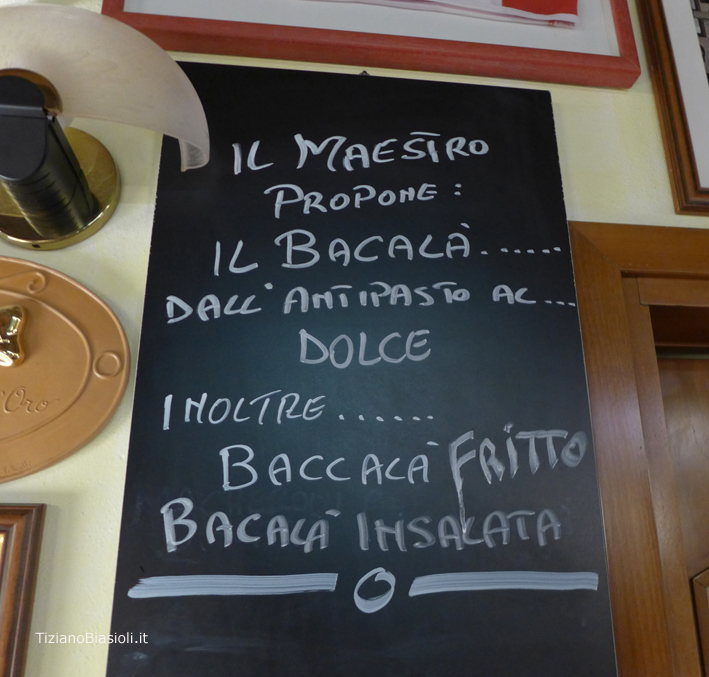 IL MAESTRO
PROPONE:
IL BACALÀ......
DALL'ANTIPASTO AL...
DOLCE
INOLTRE......
BACCALÀ FRITTO
BACALÀ INSALATA
d'Oro
TizianoBiasioli.it